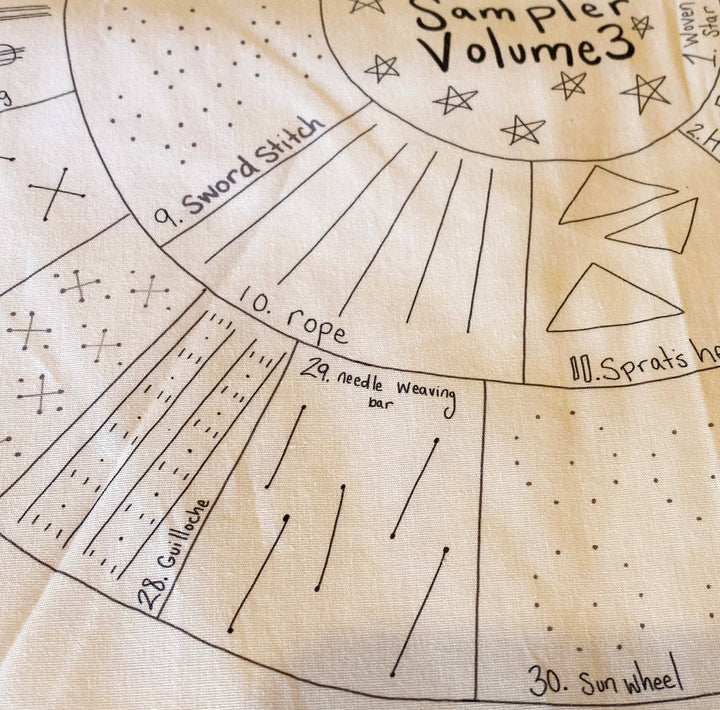 Sampler
Volume3
1. Woven
Star
2. H
9
9. Sword Stitch
10. rope
11. Sprats he
28. Guilloche
29. needle Weaving
bar
30. Sun wheel